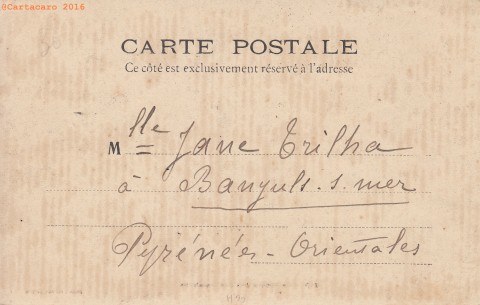 @Cartacaro 2016
CARTE POSTALE
Ce côté est exclusivement réservé à l'adresse
Mlle Jane Trilha
à Banyuls. s. mer
Pyrénées - Orientales